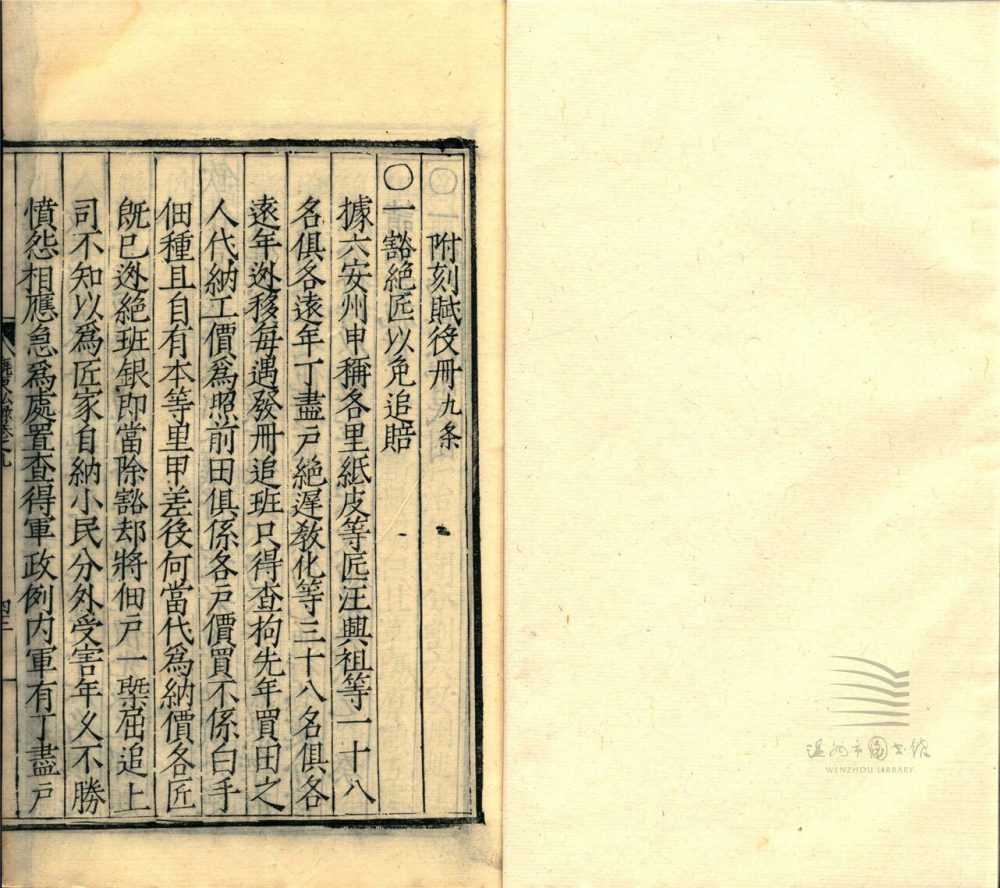 附刻賦役冊九条
〇一豁絶匠以免追賠
據六安州申稱各里紙皮等匠汪興祖等一十八
名俱各遠年丁盡戸絶遅敎化等三十八名俱各
遠年迯移每遇發冊追班只得查拘先年買田之
人代納工價爲照前田俱係各戸價買不係白手
佃種且自有本等里甲差役何當代爲納價各匠
旣已迯絶班銀即當除豁却將佃戸一槩屈追上
司不知以爲匠家自納小民分外受害年久不勝
憤怨相應急爲處置查得軍政例内軍有丁盡戸
温州市图书馆
WENZHOU LIBRARY